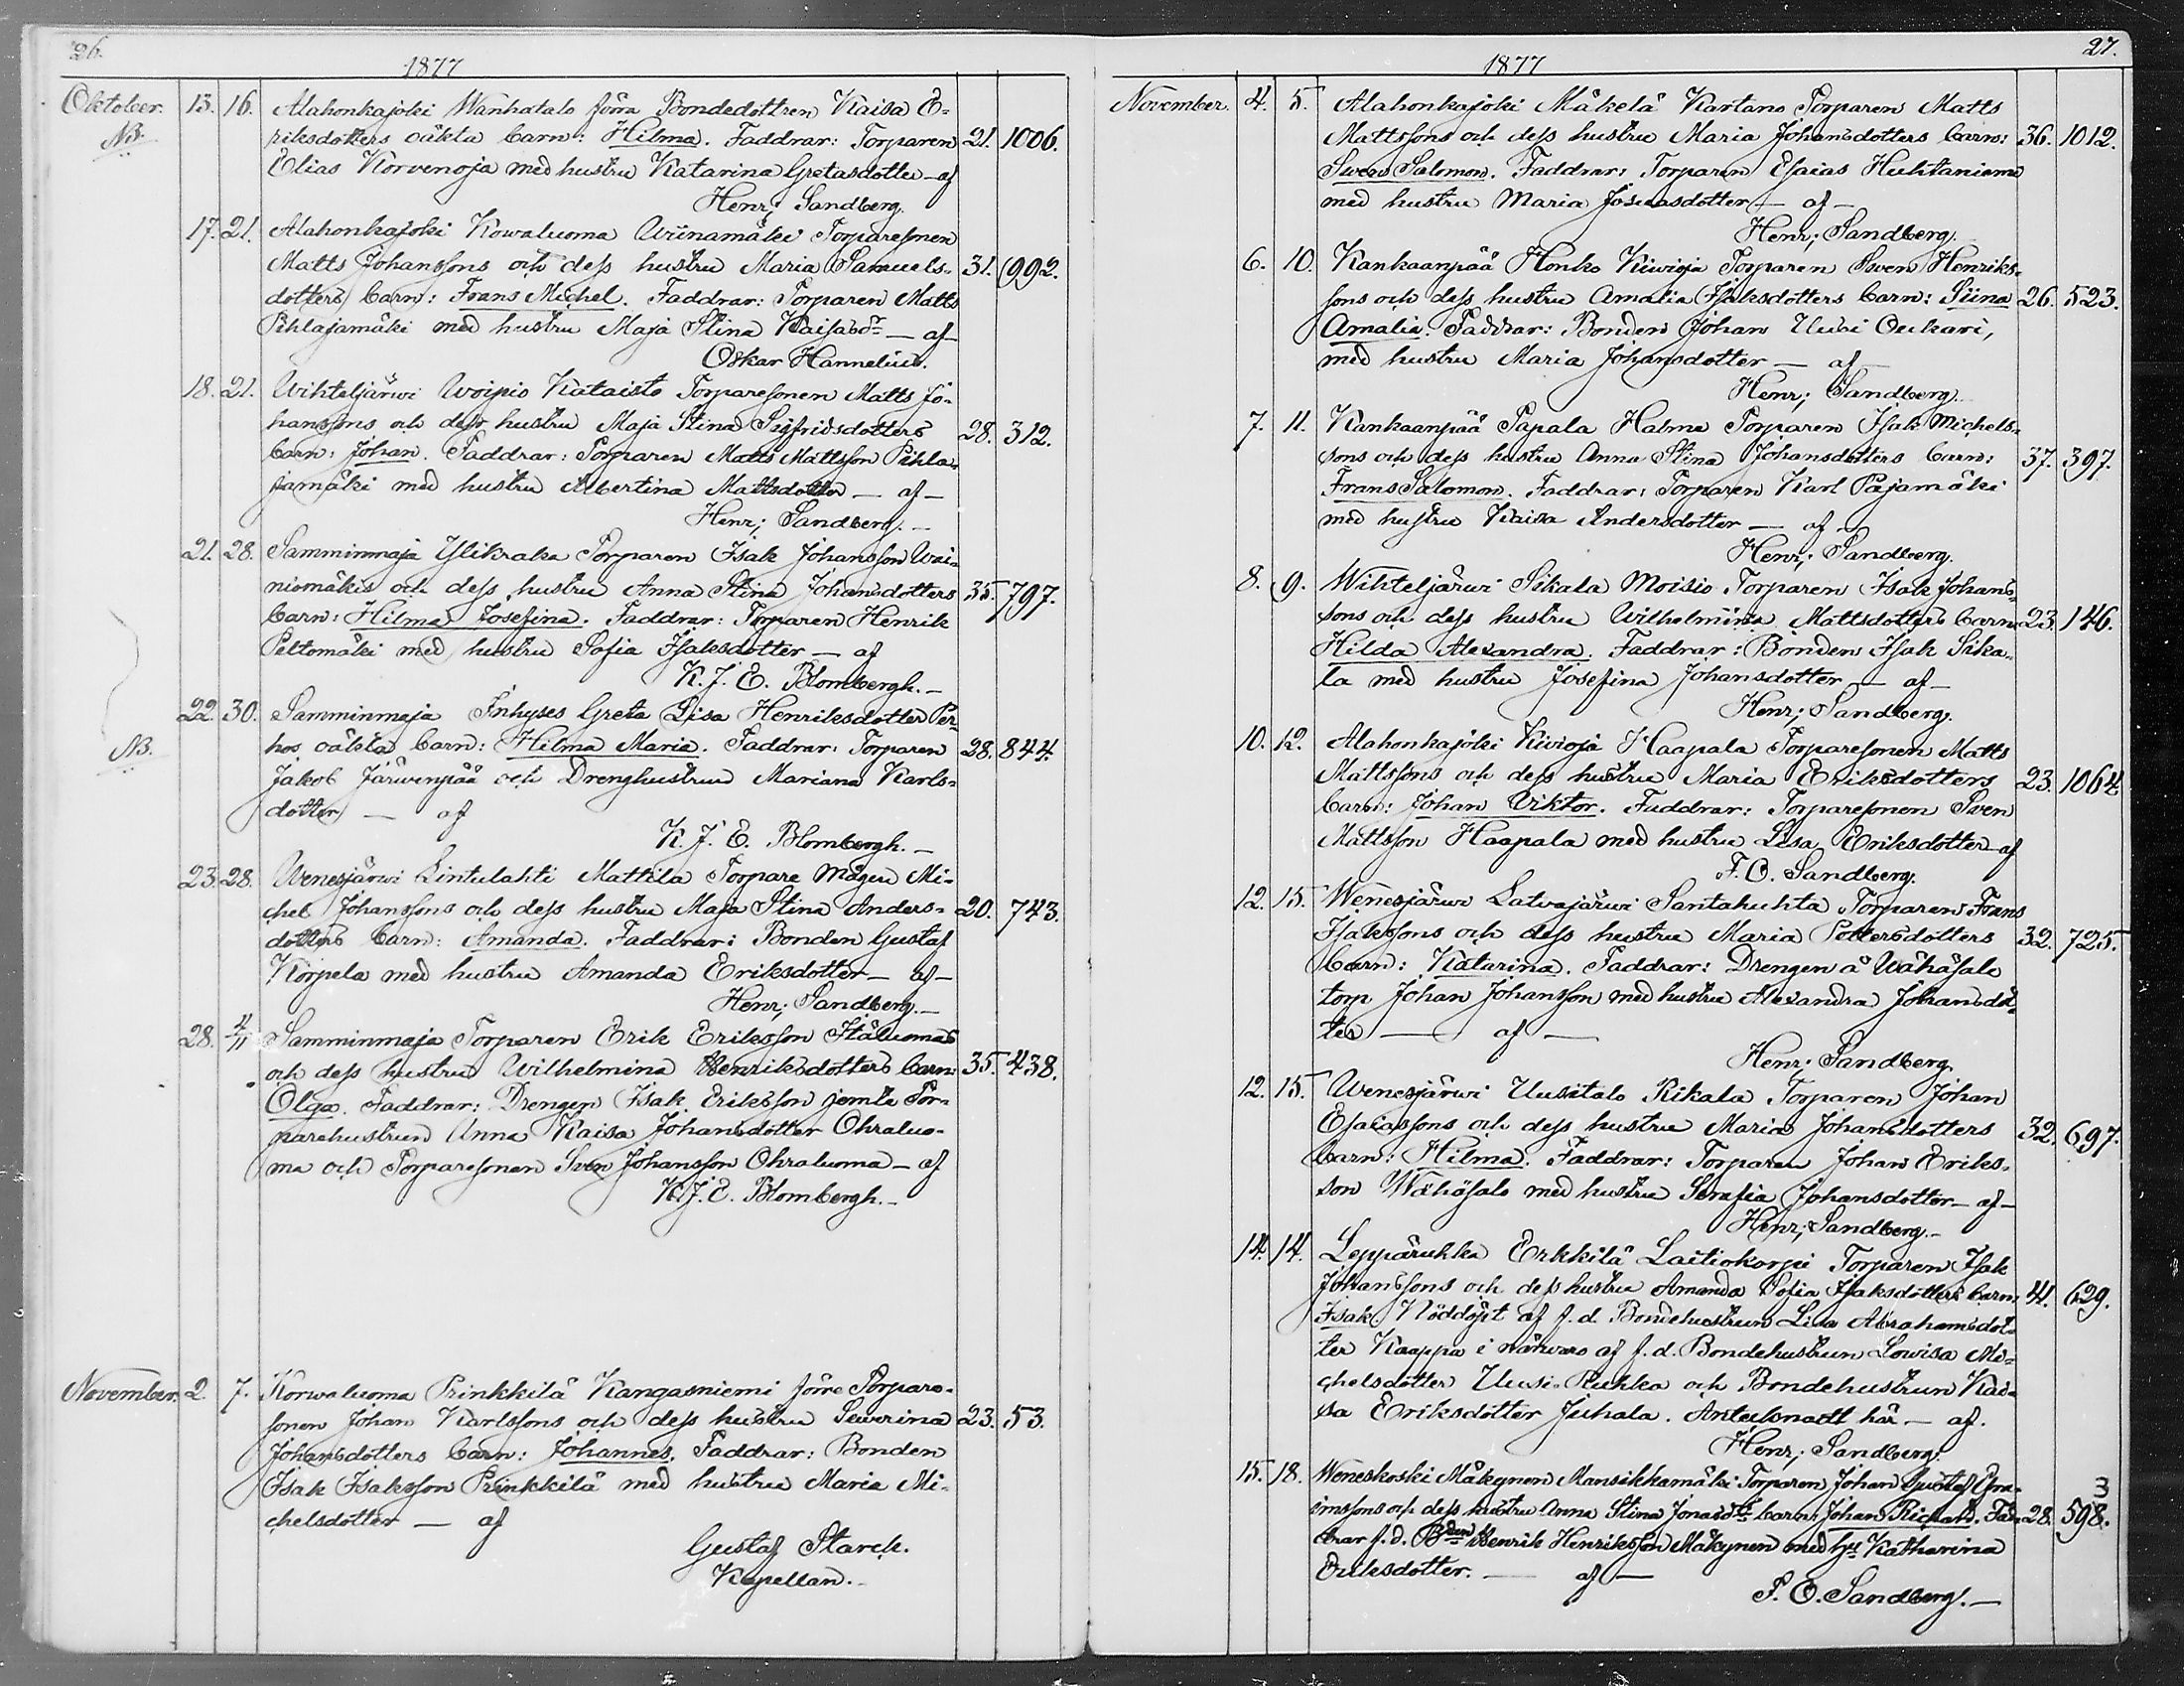 26.
1877
Oktober. 13. 16. Alahonkajoki Wanhatalo förra Bondedottren Kaisa E-
NB. riksdotters oäkta barn: Hilma. Faddrar: Torparen 21. 1006.
Elias Korvenoja med hustru Katarina Gretasdotter – af
Henr; Sandberg.
17. 21. Alahonkajoki Kowaluoma Wiinamäki Torparesonen
Matts Johanssons och dess hustru Maria Samuels- 31. 992.
dotters barn: Frans Michel. Faddrar: Torparen Matts
Pihlajamäki med hustru Maja Stina Kaisasdr – af –
Oskar Hannelius.
18. 21. Wihteljärwi Woipio Kataisto Torparesonen Matts Jo-
hanssons och dess hustru Maja Stina Sigfridsdotters 28. 312.
barn: Johan. Faddrar: Torparen Matts Mattsson Pihla-
jamäki med hustru Albertina Mattsdotter – af –
Henr; Sandberg. –
21. 28. Samminmaja Ylikraka Torparen Isak Johansson Wai-
niomäkis och dess hustru Anna Stina Johansdotters 35. 797.
barn: Hilma Josefina. Faddrar: Torparen Henrik
Peltomäki med hustru Sofia Isaksdotter – af
K. J. E. Blombergh. –
22. 30. Samminmaja Inhyses Greta Lisa Henriksdotter Per-
NB. hos oäkta barn: Hilma Maria. Faddrar: Torparen 28. 844.
Jakob Järwenpää och Drenghustrun Mariana Karls-
dotter – af
K. J. E. Blombergh. –
23. 28. Wenesjärwi Lintulahti Mattila Torpare mågen Mi-
chel Johanssons och dess hustru Maja Stina Anders- 20. 743.
dotters barn: Amanda. Faddrar: Bonden Gustaf
Korpela med hustru Amanda Eriksdotter – af –
Henr; Sandberg. –
28. 4/11 Samminmaja Torparen Erik Eriksson Itäluomas
och dess hustru Wilhelmina Henriksdotters barn: 35. 438.
Olga. Faddrar: Drengen Isak Eriksson jemte Tor-
parehustrun Anna Kaisa Johansdotter Ohraluo-
ma och Torparesonen Sven Johansson Ohraluoma – af
K. J. E. Blombergh. –
November. 2. 7. Korwaluoma Prinkkilä Kangasniemi förre Torpare-
sonen Johan Karlssons och dess hustru Sewerina 23. 53.
Johansdotters barn: Johannes. Faddrar: Bonden
Isak Isaksson Prinkkilä med hustru Maria Mi-
chelsdotter – af
Gustaf Starck.
Kapellan. –
27.
1877
November. 4. 5. Alahonkajoki Mäkelä Kartano Torparen Matts
Mattssons och dess hustru Maria Johansdotters barn: 36. 1012.
Swen Salomon. Faddrar: Torparen Esaias Huhtaniemi
med hustru Maria Josuasdotter – af –
Henr; Sandberg.
6. 10. Kankaanpää Honko Kiwioja Torparen Swen Henriks-
sons och dess hustru Amalia Isaksdotters barn: Siina 26. 523.
Amalia. Faddrar: Bonden Johan Uusi Oukari,
med hustru Maria Johansdotter – af
Henr; Sandberg.
7. 11. Kankaanpää Papala Halme Torparen Isak Michels-
sons och dess hustru Anna Stina Johansdotters barn: 37. 397.
Frans Salomon. Faddrar: Torparen Karl Pajamäki
med hustru Kaisa Andersdotter – af
Henr; Sandberg.
8. 9. Wihteljärwi Sikala Moisio Torparen Isak Johans-
sons och dess hustru Wilhelmina Mattsdotters barn: 23. 146.
Hilda Alexandra. Faddrar: Bonden Isak Sika-
la med hustru Josefina Johansdotter – af –
Henr; Sandberg.
10. 12. Alahonkajoki Kivioja Haapala Torparesonen Matts
Mattssons och dess hustru Maria Eriksdotters 23. 1064.
barn: Johan Viktor. Faddrar: Torparesonen Sven
Mattsson Haapala med hustru Lisa Eriksdotter – af
F. O. Sandberg.
12. 15. Wenesjärwi Latvajärwi Santahuhta Torparen Frans
Isakssons och dess hustru Maria Pettersdotters 32. 725.
barn: Katarina. Faddrar: Drengen å Wähäsalo
torp Johan Johansson med hustru Alexandra Johansdot-
ter – af –
Henr; Sandberg.
12. 15. Wenesjärwi Uusitalo Rikala Torparen Johan
Esaiassons och dess hustru Maria Johansdotters 32. 697.
barn: Hilma. Faddrar: Torparen Johan Eriks-
son Wähäsalo med hustru Serafia Johansdotter – af –
Henr; Sandberg. –
14. 14. Leppäruhka Erkkilä Laitiokorpi Torparen Isak
Johanssons och dess hustru Amanda Sofia Isaksdotters barn: 41. 629.
Isak. Nöddöpt af f. d. Bondehustrun Lisa Abrahamsdot-
ter Kaappa i närwaro af f. d. Bondehustrun Lowisa Mi-
chelsdotter Uusi-Ruhka och Bondehustrun Kai-
sa Eriksdotter Juhala. Antecknadt här – af.
Henr; Sandberg.
15. 18. Weneskoski Mäkynen Mansikkamäki Torparen Johan Gustaf Efra- 3
imssons och dess hustru Anna Stina Jonasdtr barn: Johan Richard. Fad- 28. 598.
drar f. d. Bden Henrik Henriksson Mäkynen med hu Katharina
Eriksdotter. – af –
F. O. Sandberg. –